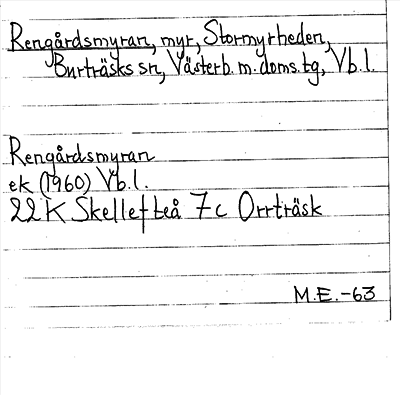 Rengårdsmyran, myr, Stormyrheden,
Burträsks sn, Västerb. m. doms. tg, Vb. l.
Rengårdsmyran
ek (1960) Vb. l.
22 K Skellefteå 7c Orrträsk
M.E.-63